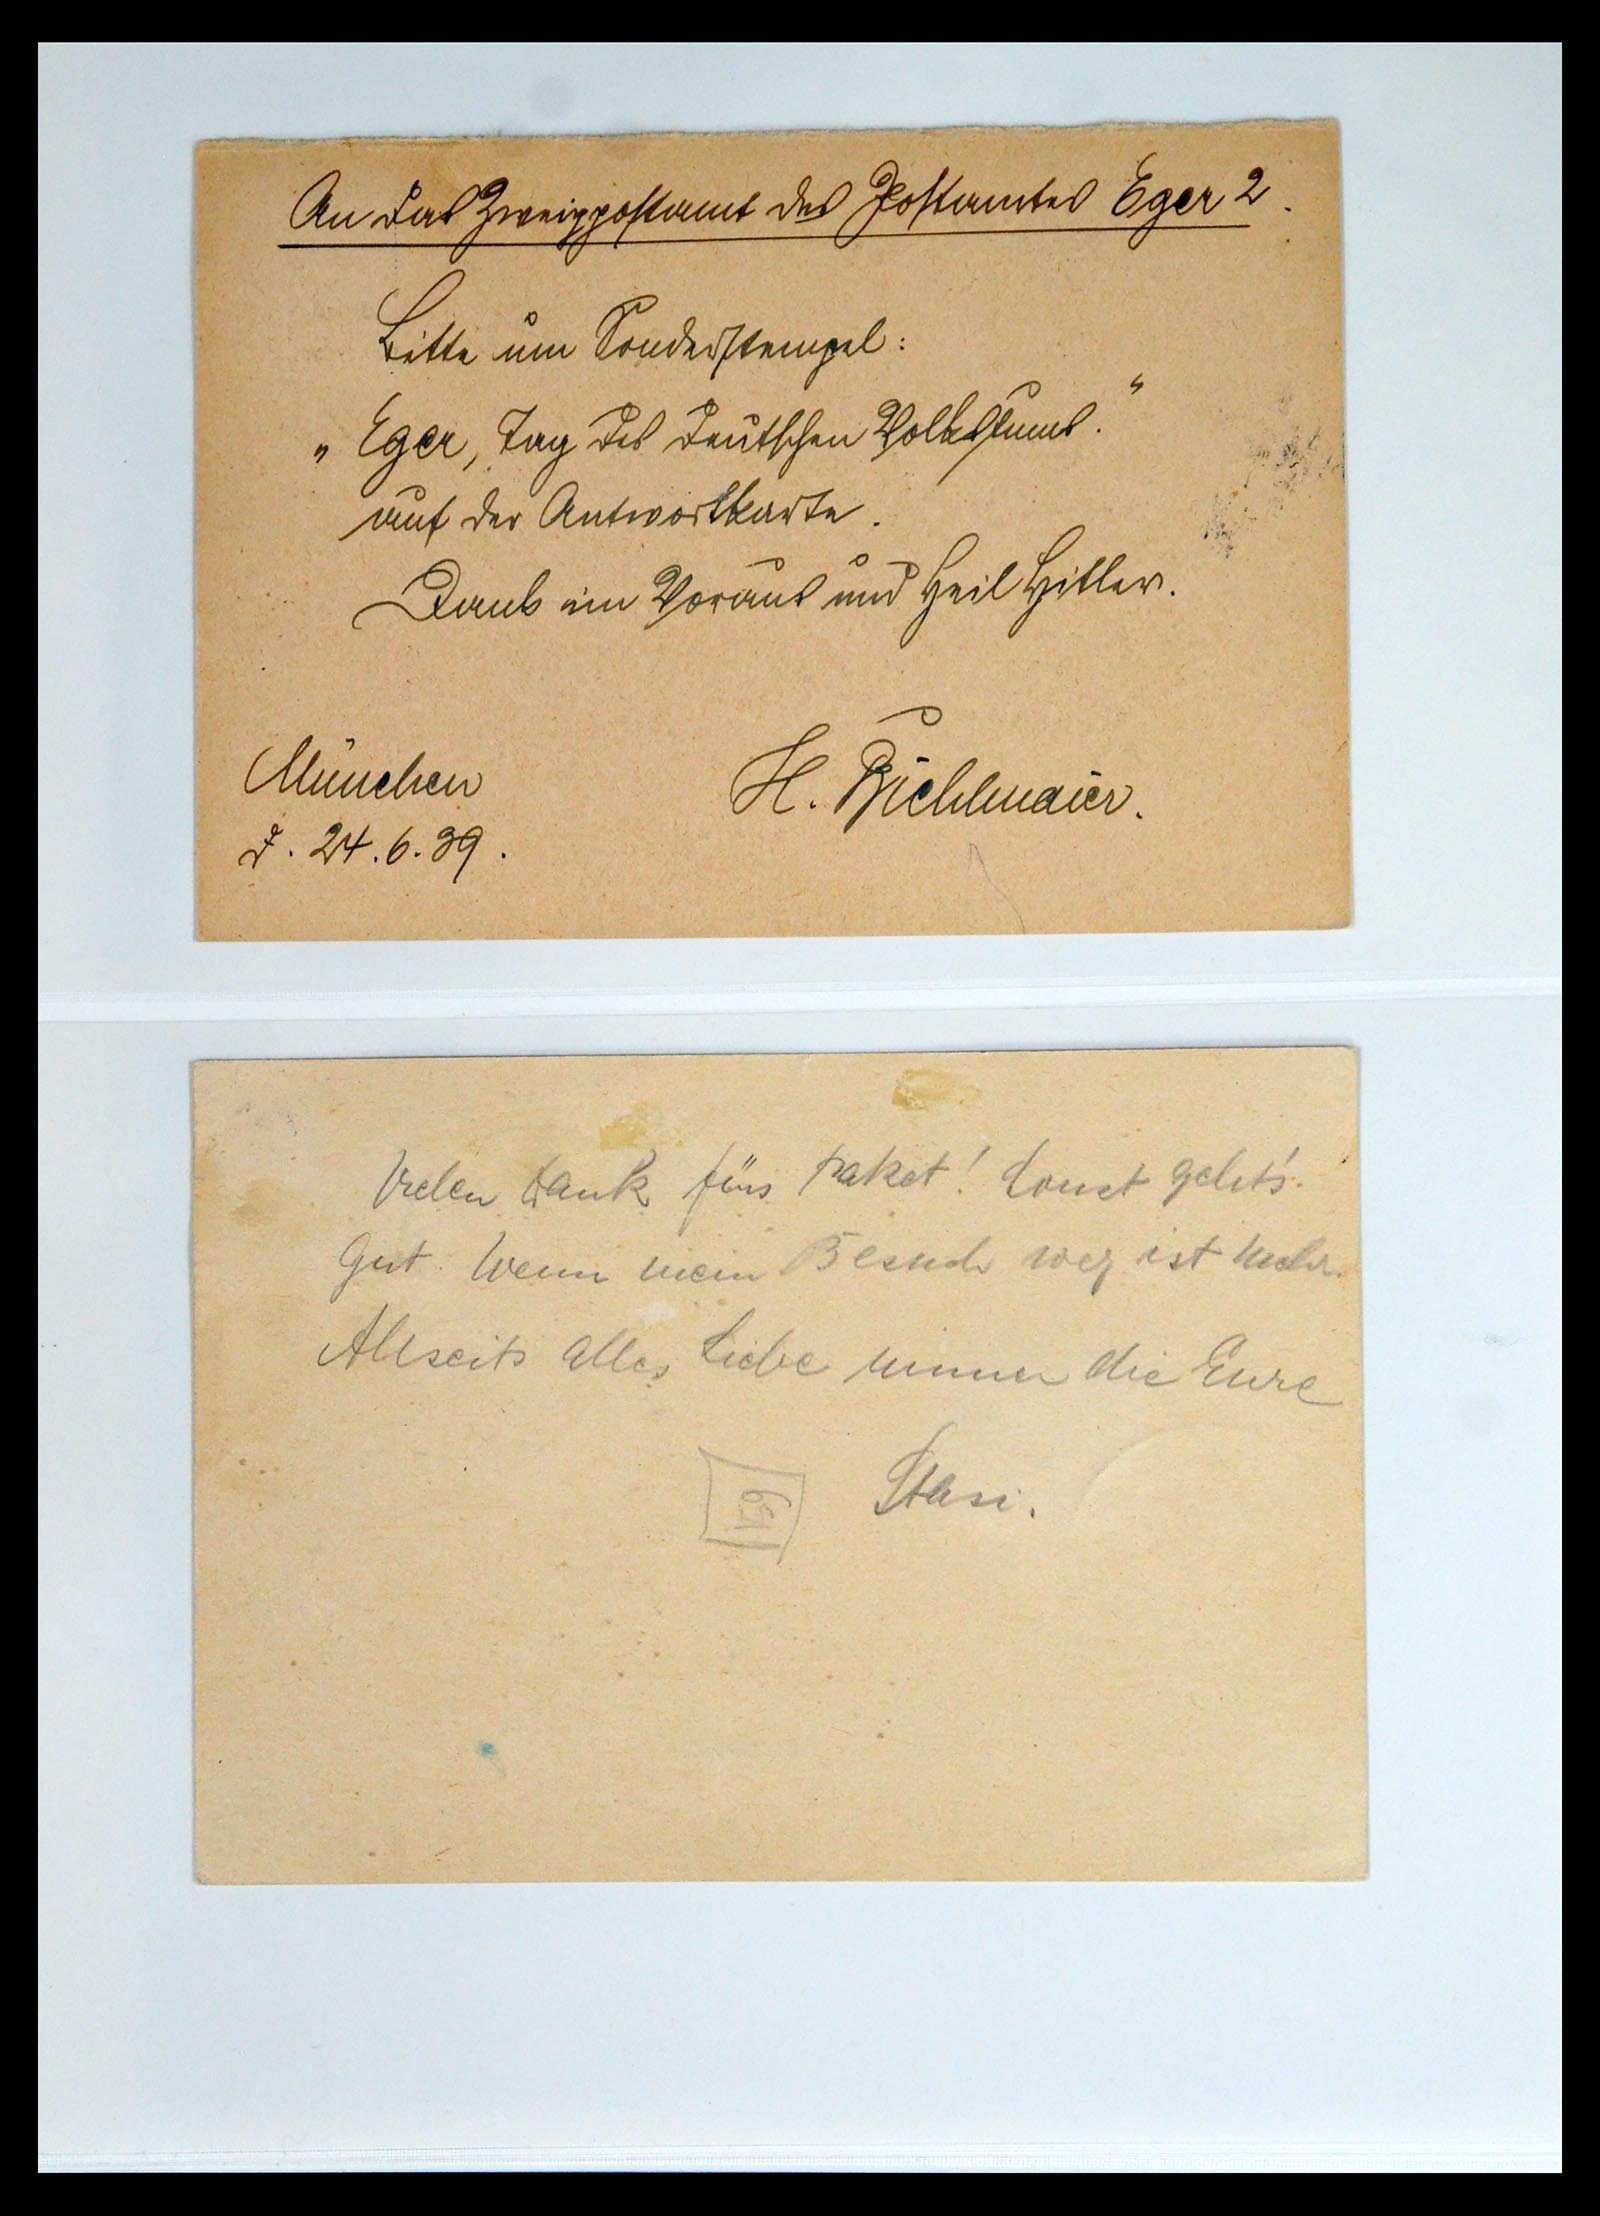 An das Zweigpostamt des Postamtes Eger 2.
Bitte um Sonderstempel:
„Eger, Tag des deutschen Volkstums."
auf der Antwortkarte.
Dank im Voraus und Heil Hitler.
München
d. 24.6.39.
H. Bichlmaier.
Vielen Dank fürs Paket! Sonst geht's.
Gut. Wenn mein Besuch weg ist mehr.
Allseits alles Liebe immer die Eure
Stasi.
159